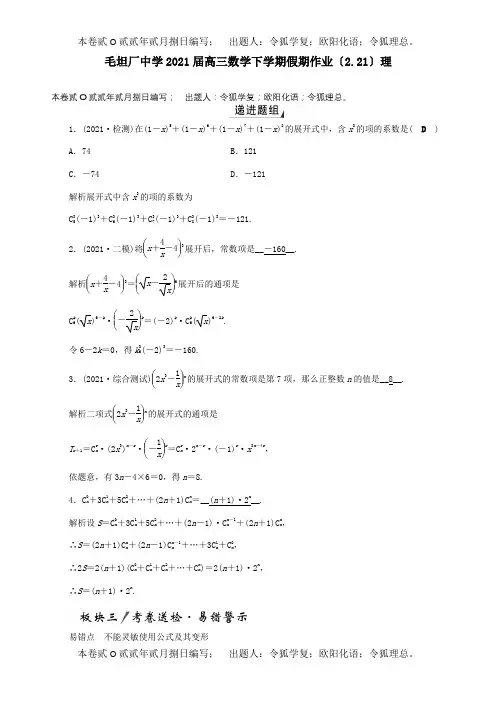 本卷贰O贰贰年贰月捌日编写； 出题人：令狐学复；欧阳化语；令狐理总。
毛坦厂中学2021届高三数学下学期假期作业〔2.21〕理
本卷贰O贰贰年贰月捌日编写； 出题人：令狐学复；欧阳化语；令狐理总。
递进题组
1．(2021·检测)在(1－x)⁵＋(1－x)⁶＋(1－x)⁷＋(1－x)⁸的展开式中，含x³的项的系数是( D )
A．74 B．121
C．－74 D．－121
解析展开式中含x³的项的系数为
C₅³(－1)³＋C₆³(－1)³＋C₇³(－1)³＋C₈³(－1)³＝－121.
2．(2021·二模)将(x＋4/x－4)³展开后，常数项是__－160__.
解析(x＋4/x－4)³＝(√x－2/√x)⁶展开后的通项是
C₆ᵏ(√x)⁶⁻ᵏ·(－2/√x)ᵏ＝(－2)ᵏ·C₆ᵏ(√x)⁶⁻²ᵏ.
令6－2k＝0，得k₆³(－2)³＝－160.
3．(2021·综合测试)(2x³－1/x)ⁿ的展开式的常数项是第7项，那么正整数n的值是__8__.
解析二项式(2x³－1/x)ⁿ的展开式的通项是
Tᵣ₊₁＝Cₙʳ·(2x³)ⁿ⁻ʳ·(－1/x)ʳ＝Cₙʳ·2ⁿ⁻ʳ·(－1)ʳ·x³ⁿ⁻⁴ʳ，
依题意，有3n－4×6＝0，得n＝8.
4．Cₙ⁰＋3Cₙ¹＋5Cₙ²＋…＋(2n＋1)Cₙⁿ＝__(n＋1)·2ⁿ__.
解析设S＝Cₙ⁰＋3Cₙ¹＋5Cₙ²＋…＋(2n－1)·Cₙⁿ⁻¹＋(2n＋1)Cₙⁿ，
∴S＝(2n＋1)Cₙⁿ＋(2n－1)Cₙⁿ⁻¹＋…＋3Cₙ¹＋Cₙ⁰，
∴2S＝2(n＋1)(Cₙ⁰＋Cₙ¹＋Cₙ²＋…＋Cₙⁿ)＝2(n＋1)·2ⁿ，
∴S＝(n＋1)·2ⁿ.
板块三 考卷送检·易错警示
易错点 不能灵敏使用公式及其变形
本卷贰O贰贰年贰月捌日编写； 出题人：令狐学复；欧阳化语；令狐理总。